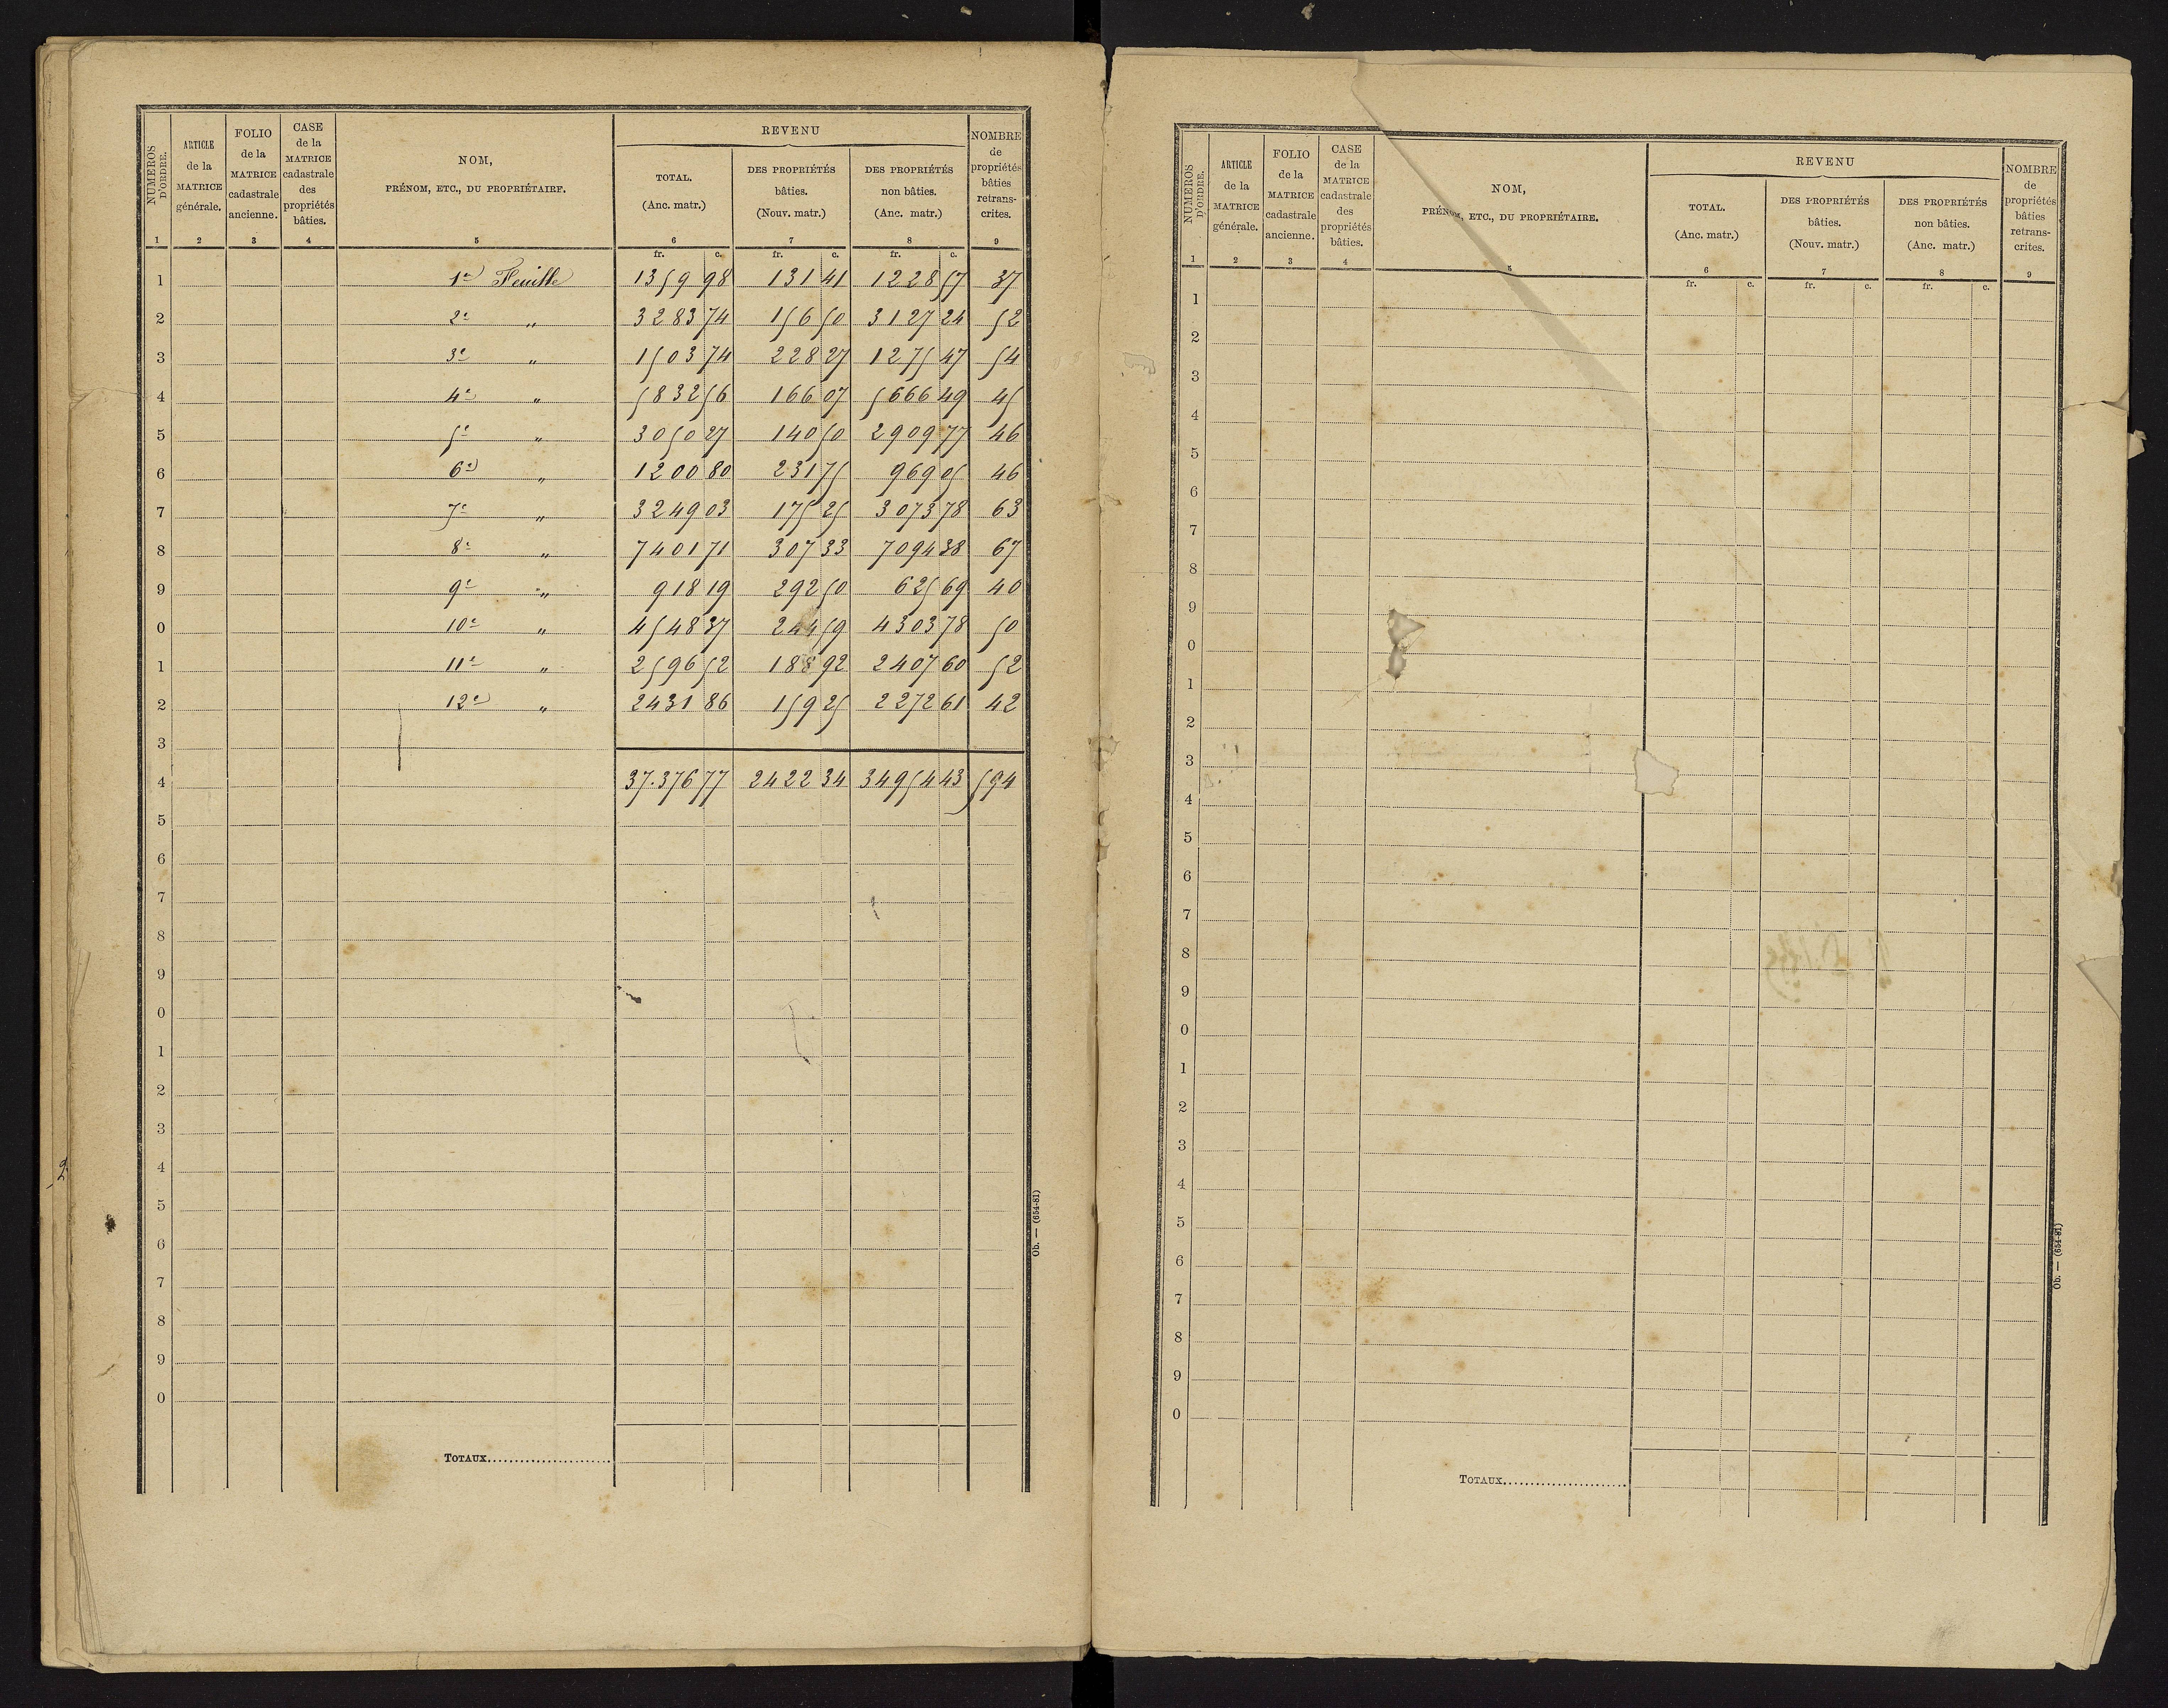 NUMÉROS D'ORDRE.
ARTICLE de la MATRICE générale.
FOLIO de la MATRICE cadastrale ancienne.
CASE de la MATRICE cadastrale des propriétés bâties.
NOM,
PRÉNOM, ETC., DU PROPRIÉTAIRE.
REVENU
TOTAL. (Anc. matr.)
DES PROPRIÉTÉS bâties. (Nouv. matr.)
DES PROPRIÉTÉS non bâties. (Anc. matr.)
NOMBRE de propriétés bâties retranscrites.
1 2 3 4 5 6 7 8 9
fr. c. fr. c. fr. c.
1 1re Feuille 1359 98 131 41 1228 57 37
2 2e " 3283 74 156 50 3127 24 52
3 3e " 1503 74 228 27 1275 47 54
4 4e " 5832 56 166 07 5666 49 45
5 5e " 3050 27 140 50 2909 77 46
6 6e " 1200 80 231 75 969 05 46
7 7e " 3249 03 175 25 3073 78 63
8 8e " 7401 71 307 33 7094 38 67
9 9e " 918 19 292 50 625 69 40
0 10e " 4548 37 244 59 4303 78 50
1 11e " 2596 52 188 92 2407 60 52
2 12e " 2431 86 159 25 2272 61 42
3
4 37.376 77 2422 34 34954 43 594
5
6
7
8
9
0
1
2
3
4
5
6
7
8
9
0
TOTAUX
Ob. — (654-81)
NUMÉROS D'ORDRE.
ARTICLE de la MATRICE générale.
FOLIO de la MATRICE cadastrale ancienne.
CASE de la MATRICE cadastrale des propriétés bâties.
NOM,
PRÉNOM, ETC., DU PROPRIÉTAIRE.
REVENU
TOTAL. (Anc. matr.)
DES PROPRIÉTÉS bâties. (Nouv. matr.)
DES PROPRIÉTÉS non bâties. (Anc. matr.)
NOMBRE de propriétés bâties retranscrites.
1 2 3 4 5 6 7 8 9
fr. c. fr. c. fr. c.
1
2
3
4
5
6
7
8
9
0
1
2
3
4
5
6
7
8
9
0
1
2
3
4
5
6
7
8
9
0
TOTAUX
Ob. — (654-81)